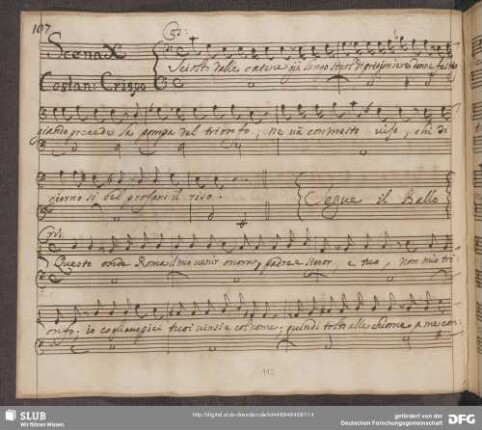 107
Scena X
Costan: Crispo
Cos:
Sciolti dalle catene già sono
donne festeg-
giando precede la pompa del trionfo, ne và con mesto viso, chi di
giorno sì bel profani il riso.
Segue il Ballo
Cris:
Questo onde Roma il mio venir onora, padre e Signor, e tuo, non mio tri-
onfo; io coglier gl'ei
tuoi vinsi e col nome, quindi tolto alle chiome
112
SLUB
Wir führen Wissen.
http://digital.slub-dresden.de/id449949428/114
gefördert von der
Deutschen Forschungsgemeinschaft
DFG